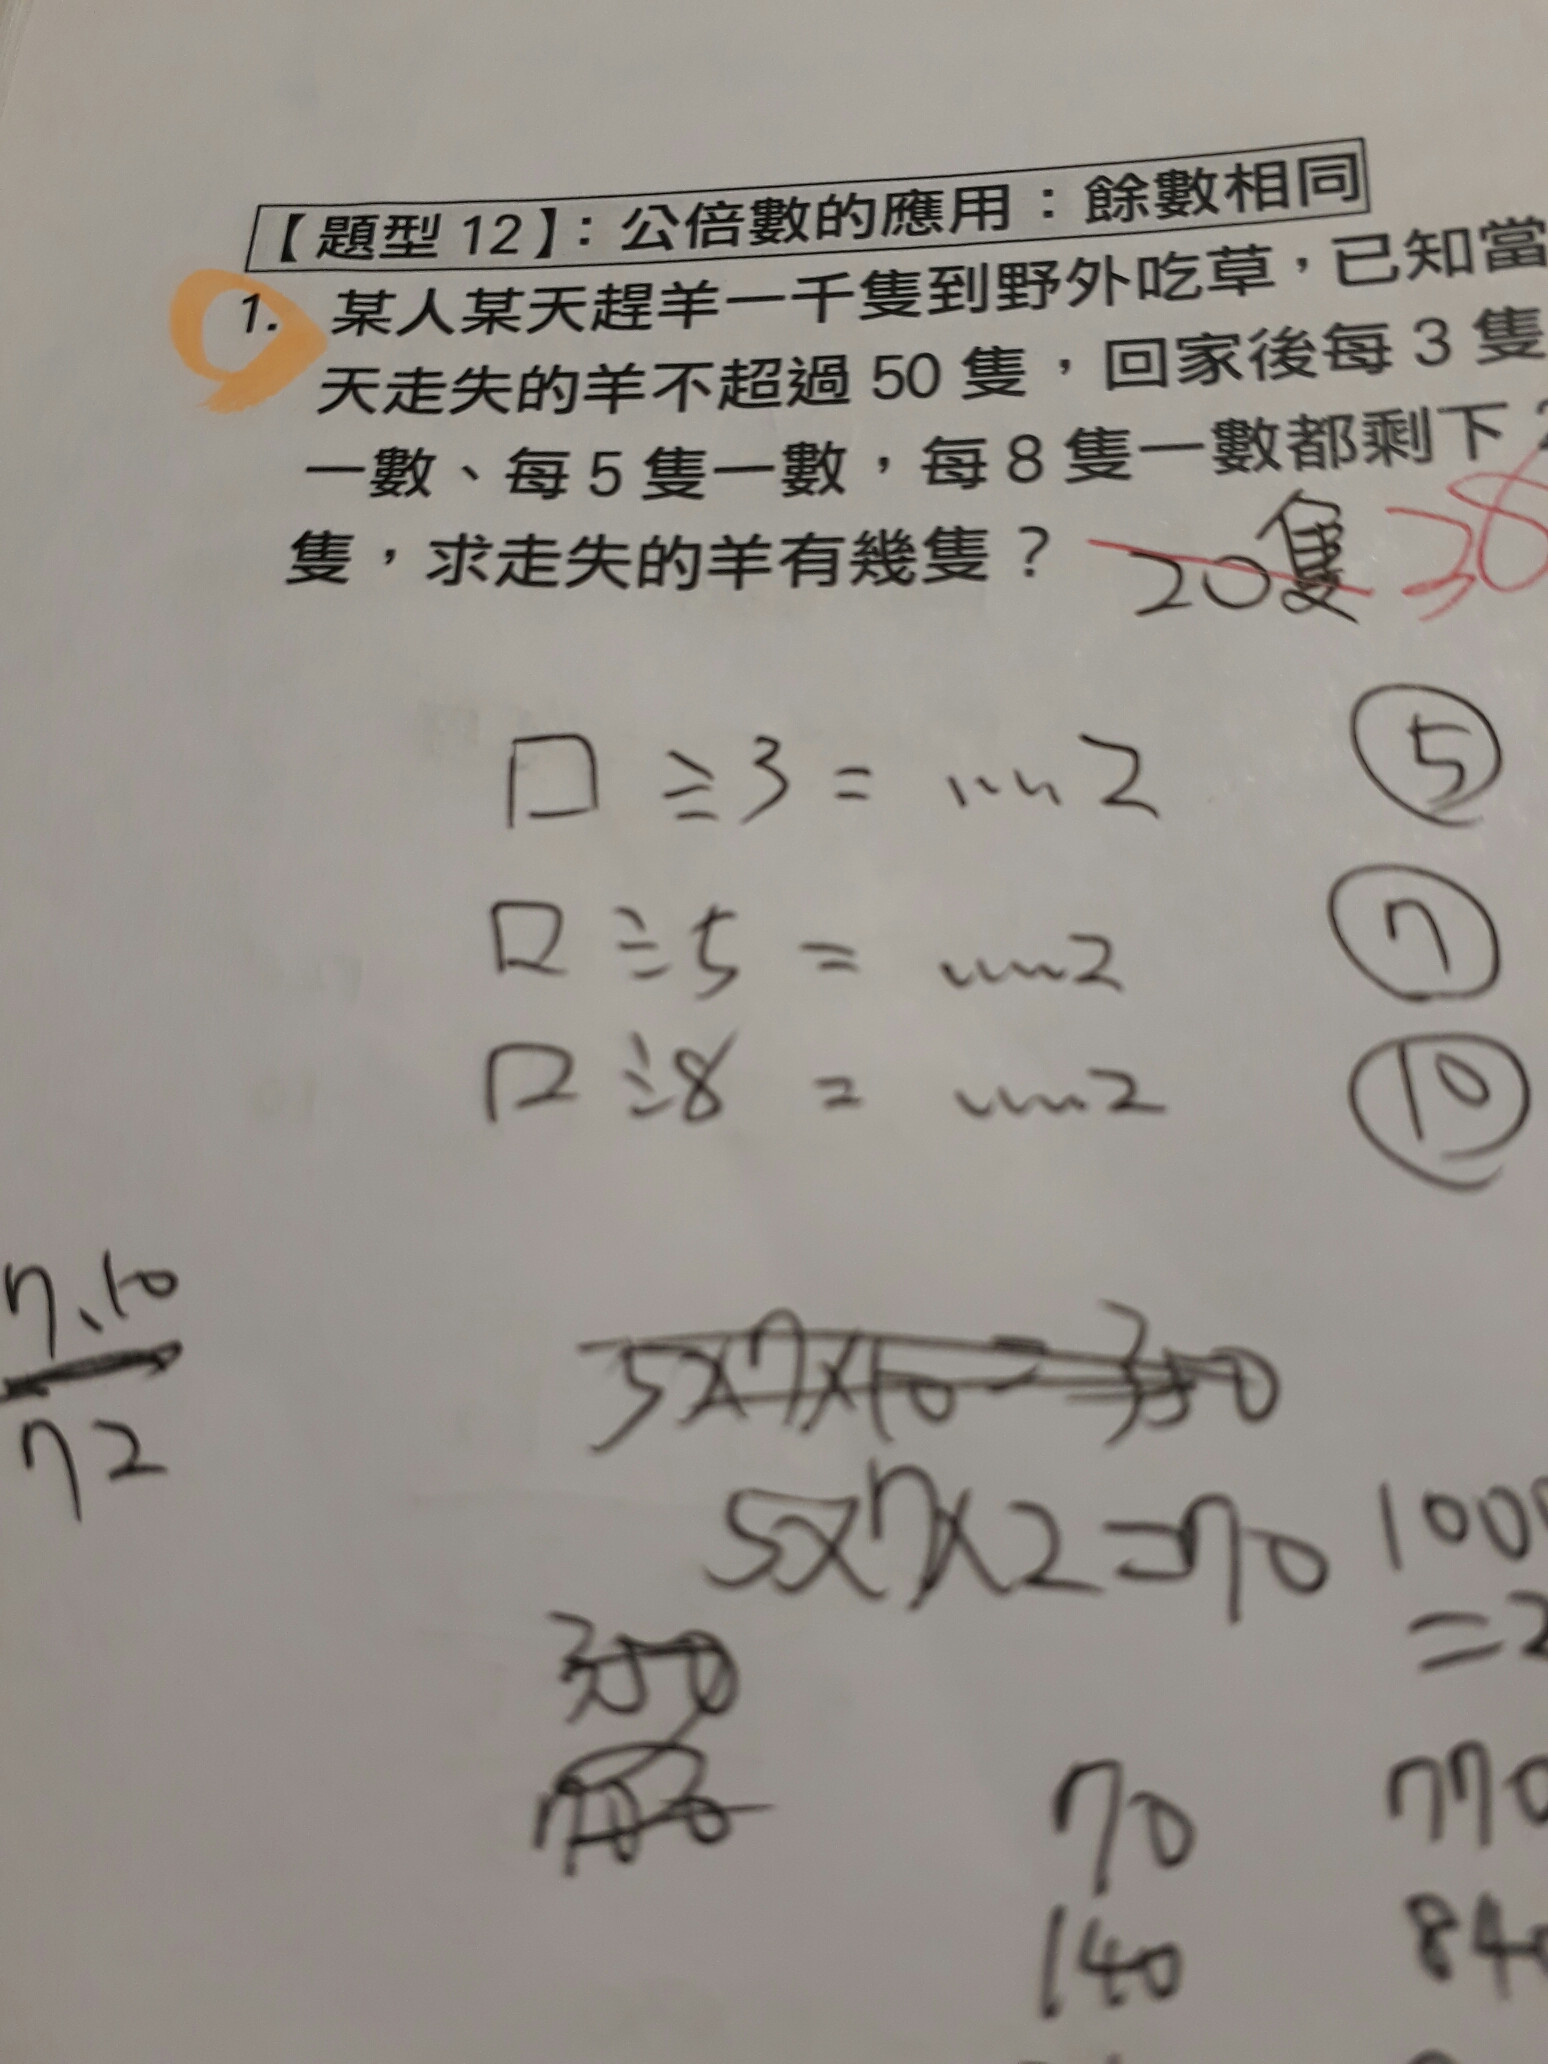 【題型 12】：公倍數的應用：餘數相同
1. 某人某天趕羊一千隻到野外吃草，已知當
天走失的羊不超過 50 隻，回家後每 3 隻
一數、每 5 隻一數，每 8 隻一數都剩下 2
隻，求走失的羊有幾隻？ 20隻 38
口÷3= ……2 ⑤
口÷5 = ……2 ⑦
口÷8 = ……2 ⑩
7、10
72
5x7x10=350
5x7x2=70 100
=2
350
700
70 770
140 840